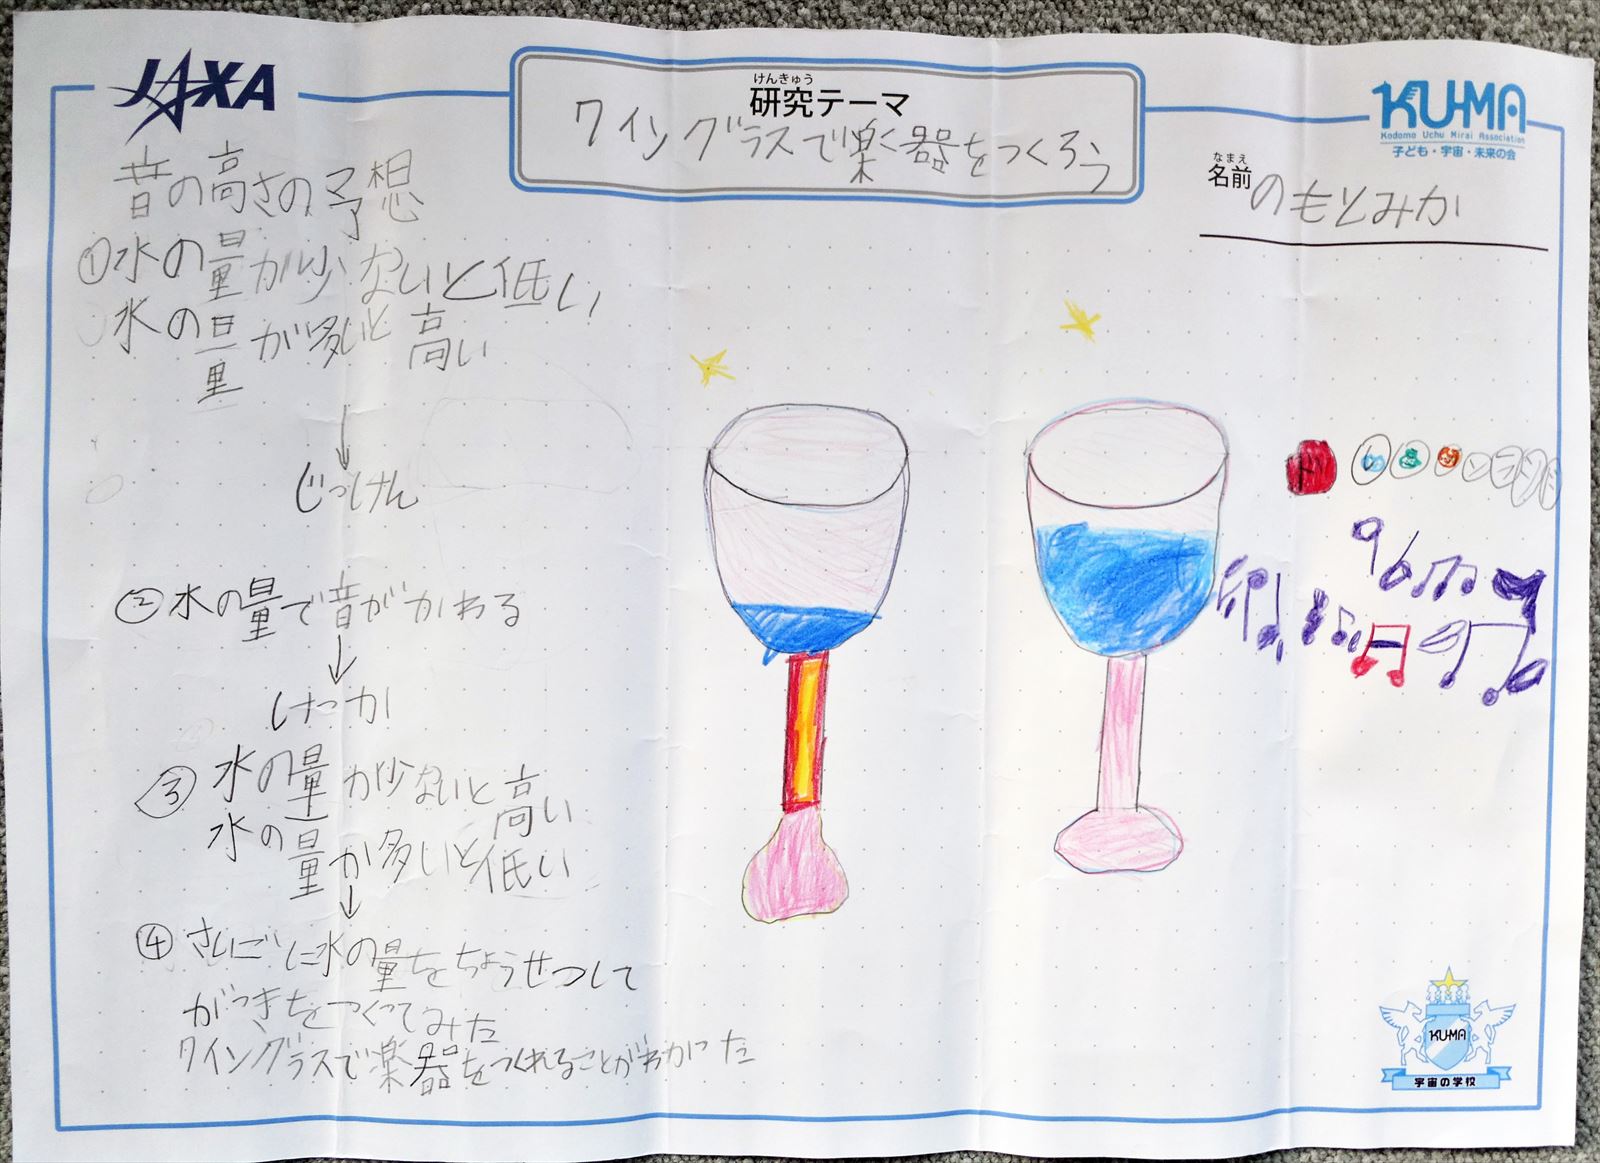 JAXA
けんきゅう
研究テーマ
ワイングラスで楽器をつくろう
KU-MA
Kodomo Uchu Mirai Association
子ども・宇宙・未来の会
なまえ
名前
のもとみか
音の高さの予想
①水の量が少ないと低い
水の量が多いと高い
↓
じっけん
②水の量で音がかわる
↓
けっか
③水の量が少ないと高い
水の量が多いと低い
↓
④さいごに水の量をちょうせつして
がっきをつくってみた
ワイングラスで楽器をつくれることがわかった
ド レ ミ ファ ソ ラ シ ド
KU-MA
宇宙の学校